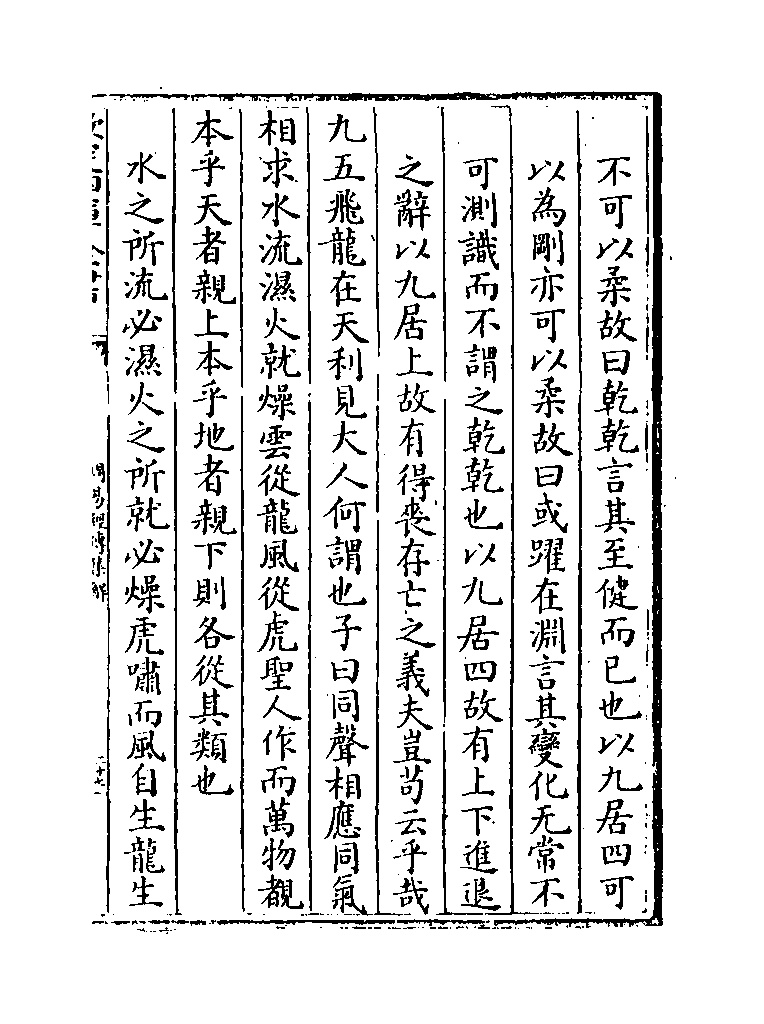 不可以柔故曰乾乾言其至健而已也以九居四可
以為剛亦可以柔故曰或躍在淵言其變化无常不
可測識而不謂之乾乾也以九居四故有上下進退
之辭以九居上故有得喪存亡之義夫豈苟云乎哉
九五飛龍在天利見大人何謂也子曰同聲相應同氣
相求水流濕火就燥雲從龍風從虎聖人作而萬物覩
本乎天者親上本乎地者親下則各從其類也
水之所流必濕火之所就必燥虎嘯而風自生龍生